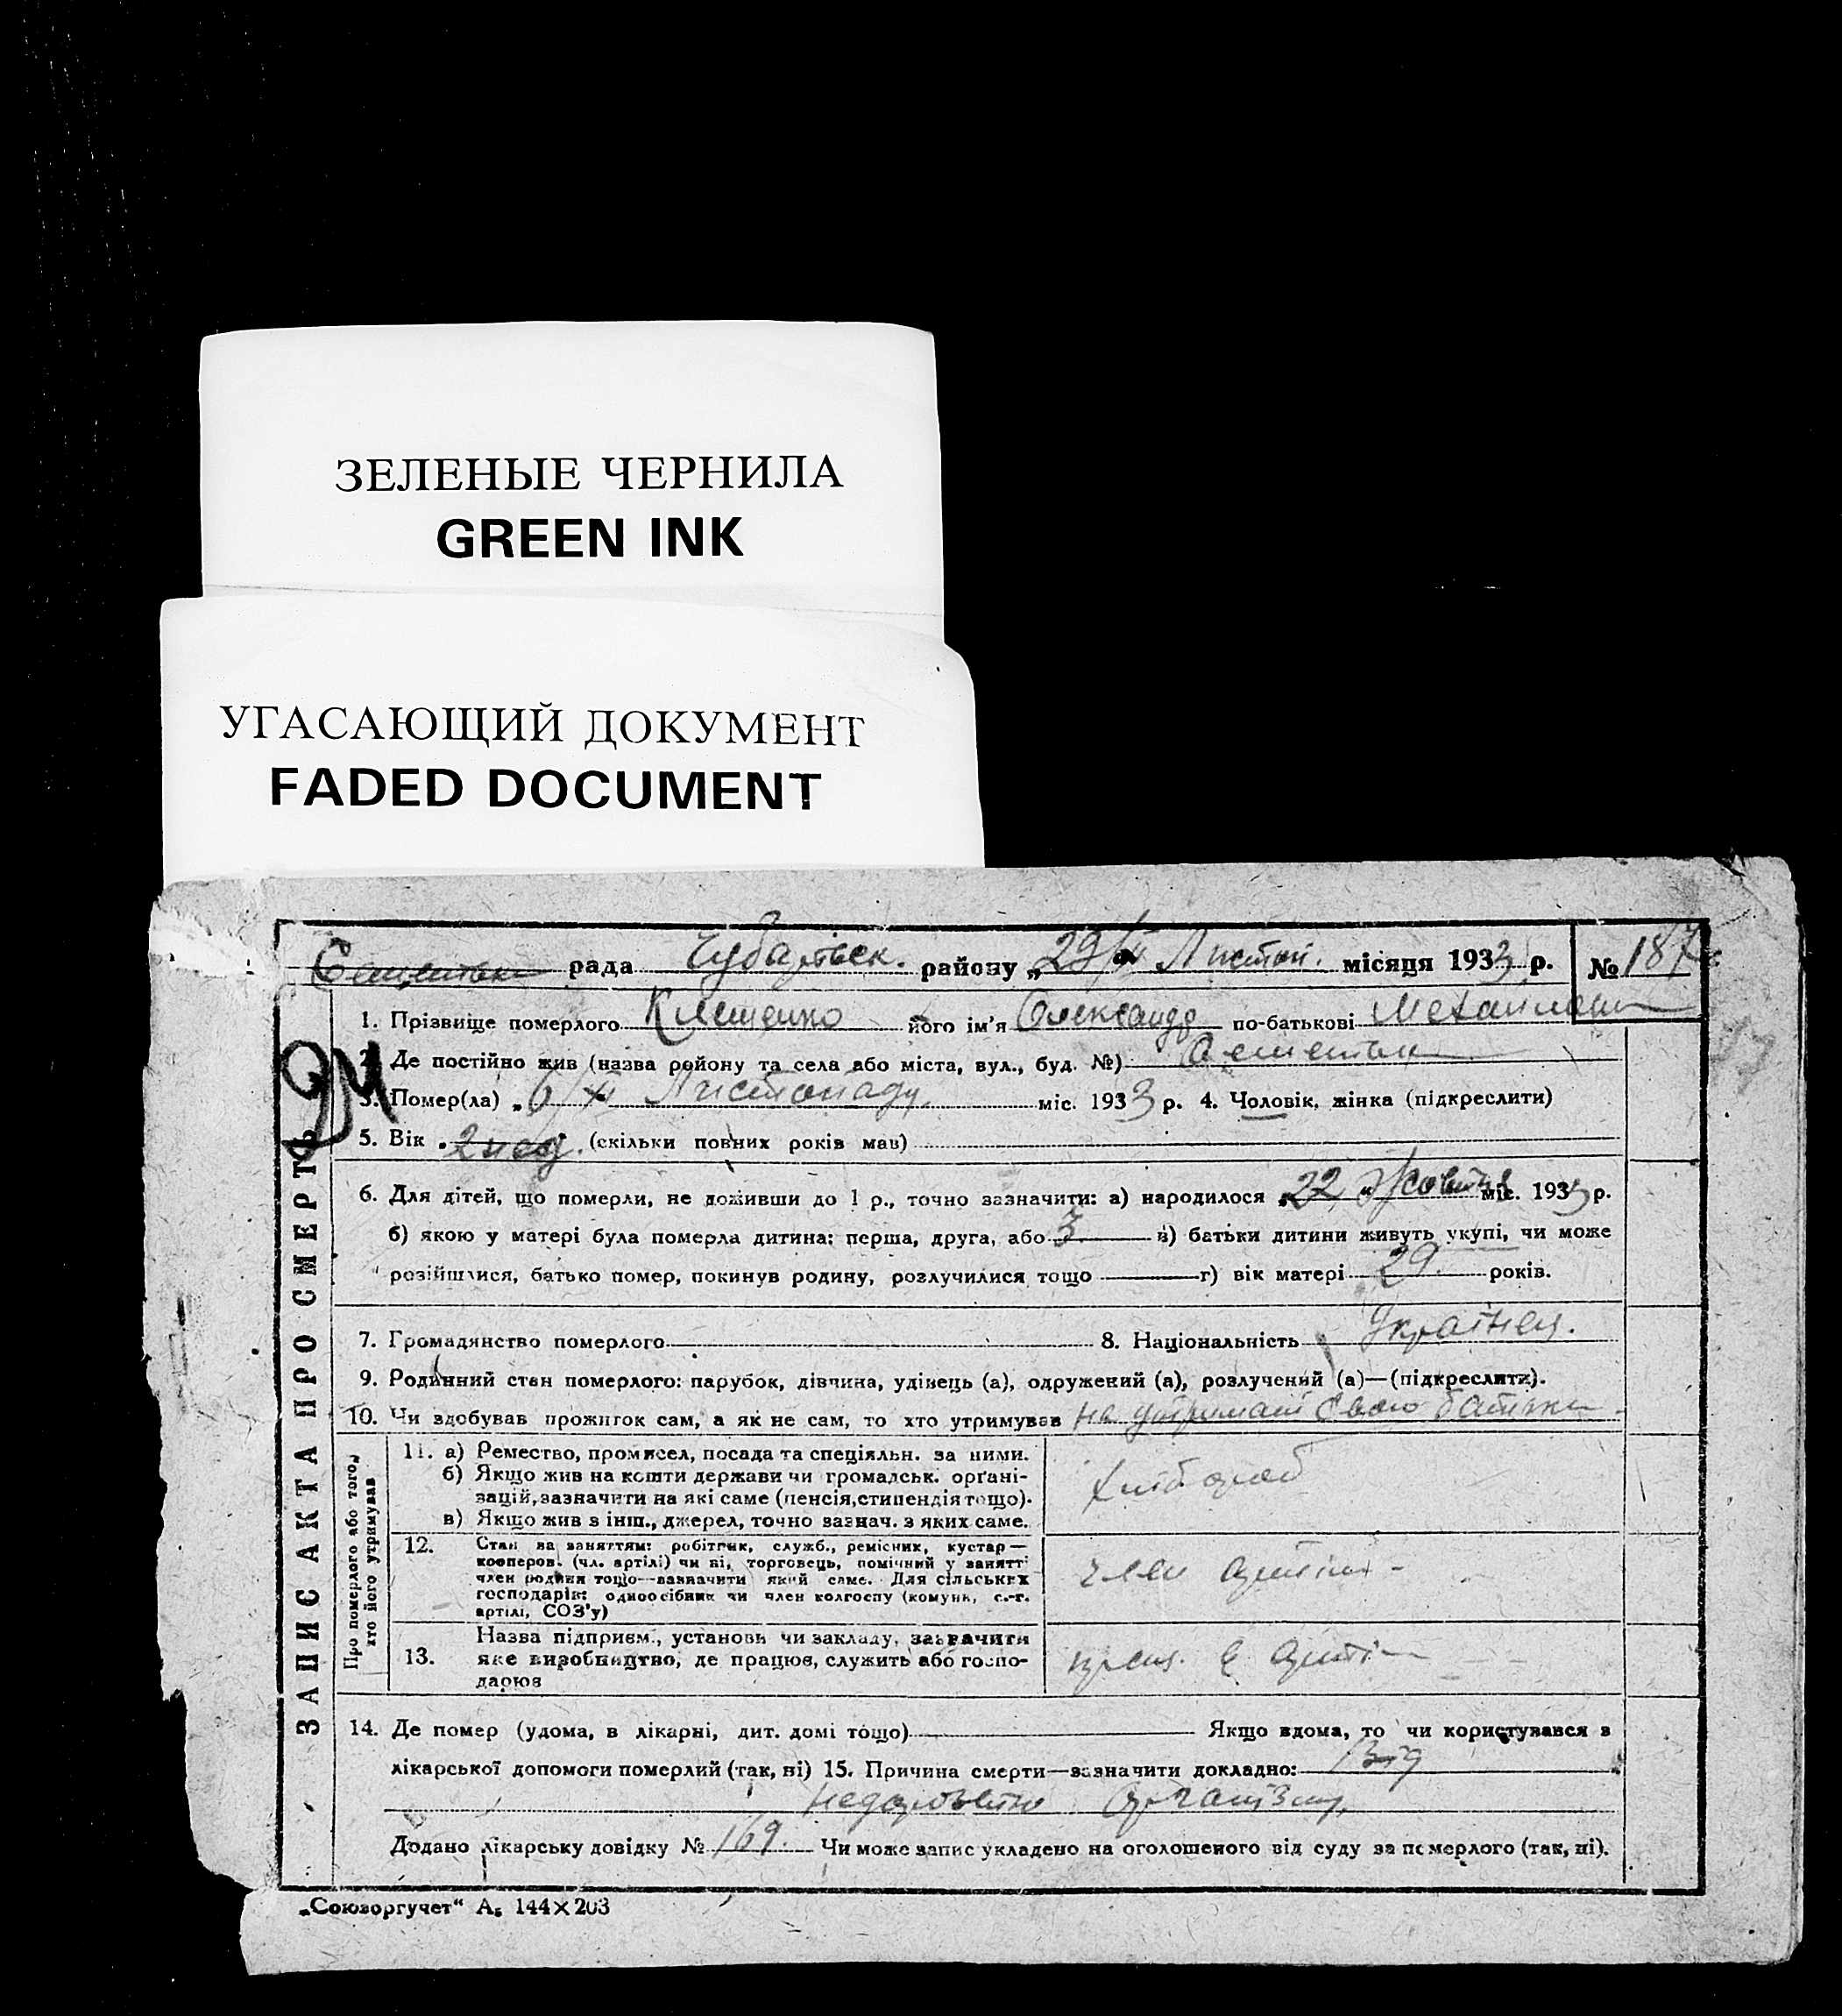 ЗЕЛЕНЫЕ ЧЕРНИЛА
GREEN INK
УГАСАЮЩИЙ ДОКУМЕНТ
FADED DOCUMENT
рада Чубарівськ. району „29/XI Листоп. місяця 1933 р. № 187
1. Прізвище померлого Клещенко його ім'я Олександр по-батькові
2. Де постійно жив (назва району та села або міста, вул., буд. №)
3. Помер(ла) „6/XI Листопаду міс. 1933 р. 4. Чоловік, жінка (підкреслити)
5. Вік „2 нед. (скільки повних років мав)
6. Для дітей, що померли, не доживши до 1 р., точно зазначити: а) народилося „22 Жовтня міс. 1933 р.
б) якою у матері була померла дитина: перша, друга, або 3 в) батьки дитини живуть укупі, чи може
розійшлися, батько помер, покинув родину, розлучилися тощо г) вік матері 29. років.
7. Громадянство померлого 8. Національність Українец.
9. Родинний стан померлого: парубок, дівчина, удівець (а), одружений (а), розлучений (а)—(підкреслити).
10. Чи здобував прожиток сам, а як не сам, то хто утримував на утримані свого батька
ЗАПИС АКТА ПРО СМЕРТЬ
Про померлого або того, хто його утримував
11. а) Ремество, промисел, посада та спеціяльн. за ними.
б) Якщо жив на кошти держави чи громадськ. орґані-
зацій, зазначити на які саме (пенсія, стипендія тощо).
в) Якщо жив з інш., джерел, точно зазнач. з яких саме.
Хлібороб
12. Стан за заняттям: робітник, служб., ремісник, кустар—
кооперов. (чл. артілі) чи ні, торговець, помічний у занятті
член родини тощо—зазначити який саме. Для сільських
господарів: одноосібник чи член колгоспу (комуни, с.-г.
артілі, СОЗ'у)
член артілі
13. Назва підприєм., установи чи закладу, зазначити
яке виробництво, де працює, служить або госпо-
дарює
прац. в артілі
14. Де помер (удома, в лікарні, дит. домі тощо) Якщо вдома, то чи користувався з
лікарської допомоги померлий (так, ні) 15. Причина смерти—зазначити докладно: Від
недорозвитку організму
Додано лікарську довідку № 169. Чи може запис укладено на оголошеного від суду за померлого (так, ні).
„Союзоргучет“ А5 144×203